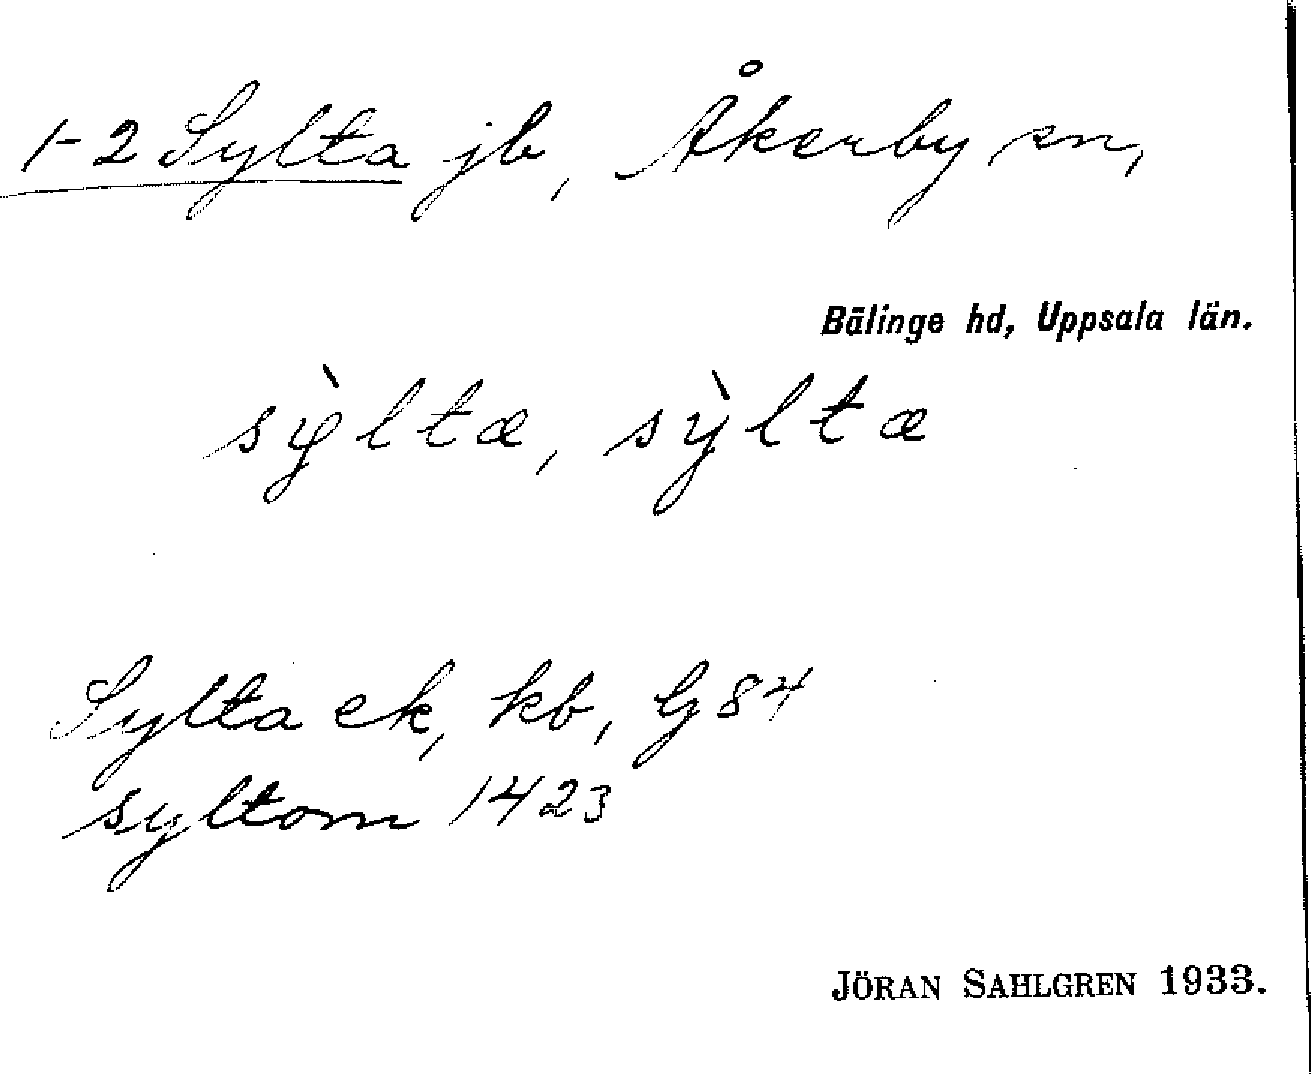 1-2 Sylta jb, Åkerby sn,
Bälinge hd, Uppsala län.
sỳltæ, sỳltæ
Sylta ek, kb, G 84
syltom 1423
JÖRAN SAHLGREN 1933.